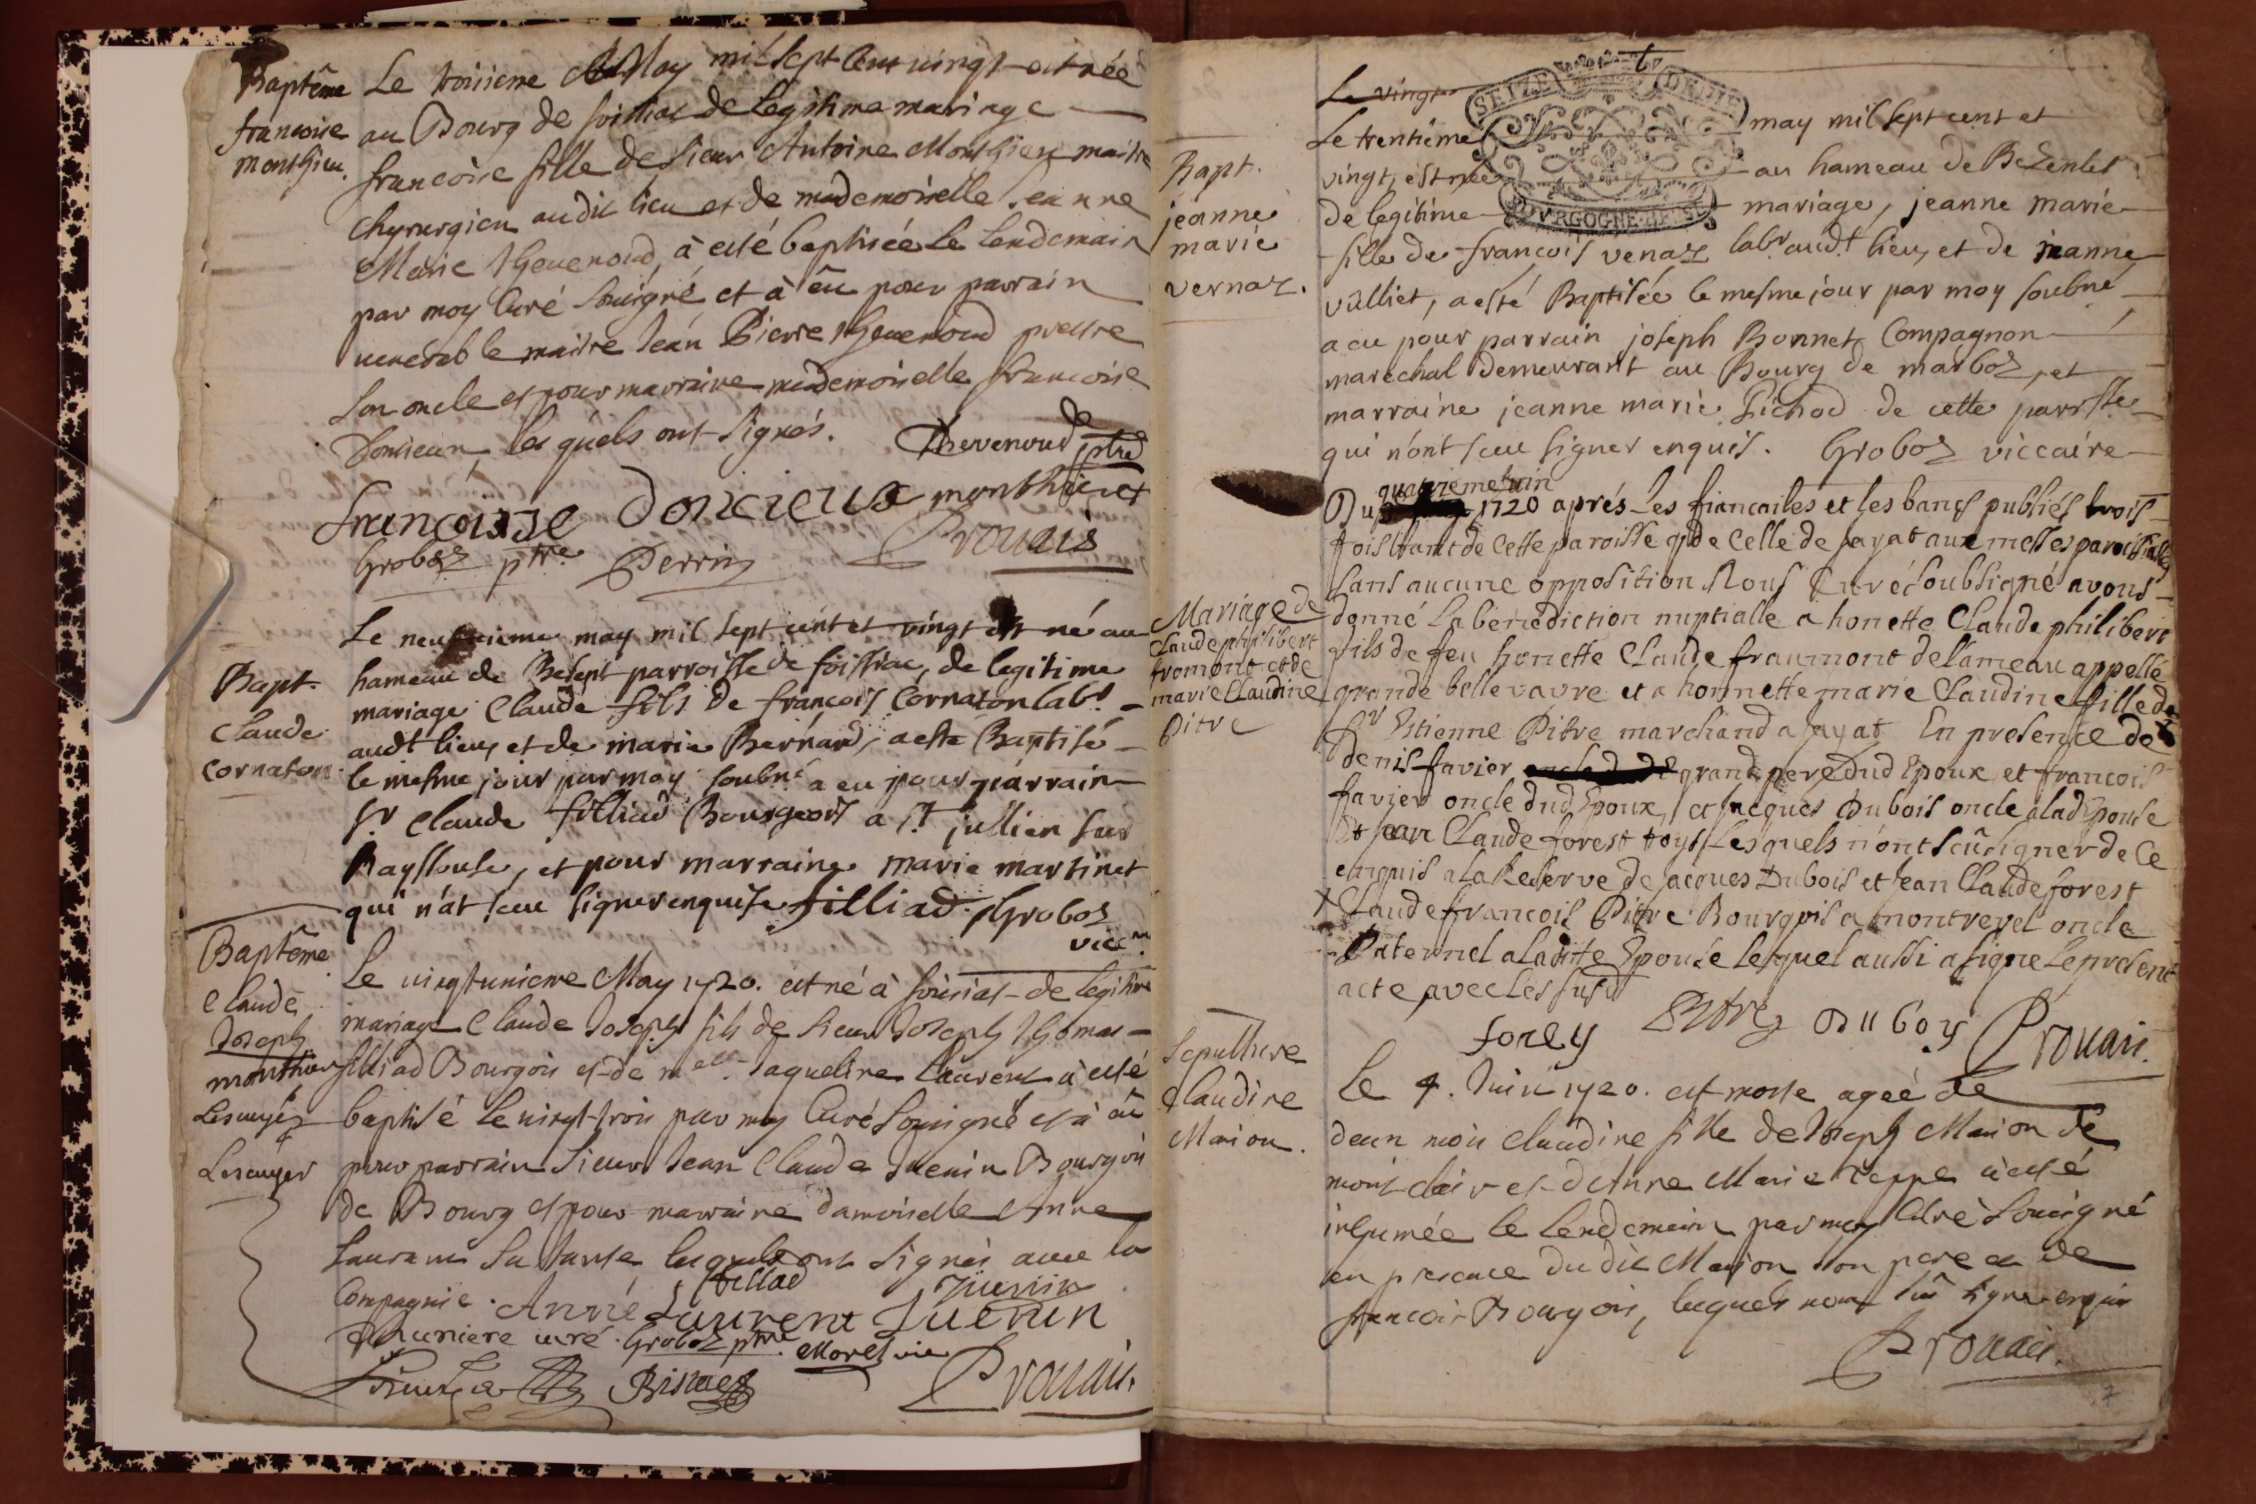 Baptême
francoise
monthieu.
Le troisieme May mil sept cent vingt est née
au Bourg de foissiat de legitime mariage
francoise fille de sieur Antoine Monthieu maitre
chyrurgien audit lieu et de mademoiselle Jeanne
Marie Thevenoud, à esté baptisée le lendemain
par moy Curé soussigné, et à êu pour parrain
venerable maitre Jean Pierre Thevenoud prestre
son oncle et pour marraine mademoiselle francoise
Donsieux, lesquels ont signés. Thevenoud ptre
francoisse doncieux monthieu
Groboz ptre Perrin Prouais
Bapt.
Claude
Cornaton
Le neufvieme may mil sept cent et vingt est né au
hameau de Besept parroisse de foissiac, de legitime
mariage Claude fils de francois Cornaton labr.
audt lieu, et de marie Bernard, a esté Baptisé
le mesme jour par moy soubné a eu pour parrain
sr Claude filliad Bourgeois a st jullien sur
Rayssouse, et pour marraine marie martinet
qui n'at sceu signer enquise filliad. Groboz
vicc
Baptême
Claude
Joseph
Le vingtunieme May 1720. est né à foissiat de legitime
mariage Claude Joseph fils de sieur Joseph Thomas
filliad Bourgois et de melle Jaqueline Laurent à esté
baptisé le vingt-trois par moy Curé soussigné et à êu
pour parrain sieur Jean Claude Juenin Bourgois
de Bourg et pour marraine damoiselle Anne
Laurent sa tante lesquels ont signés avec la
Compagnie. filliad Juenin
Anne Laurent Juenin
curé. Groboz ptre. Morel vic
Prouais.
Bapt.
jeanne
marie
vernaz.
Le vingt
SEIZE DENIE
BOURGOGNE
Le trentieme may mil sept cent et
vingt, est née au hameau de Bezentet
de legitime mariage, jeanne marie
fille de francois venaz labr audt lieu, et de jeanne
vulliet, a esté Baptisée le mesme jour par moy soubné
a eu pour parrain joseph Bonnet Compagnon
marechal demeurant au Bourg de marboz, et
marraine jeanne marie Pichod de cette parrsse
qui n'ont sceu signer enquis. Groboz viccaire
Mariage de
Claude philibert
fromont et de
marie Claudine
Pitre
quatrieme juin
Du 1720 aprés Les fiancailes et les bancs publiés trois
fois tant de Cette paroisse q de Celle de jayat aux messes paroissialles
sans aucune opposition Nous Curé soubsigné avons
donné La benediction nuptialle a honette Claude philibert
fils de feu honette Claude fraumont de lameau appellé
grande belle vavre et a honnette marie Claudine fille de
Sr Estienne Pitre marchand a jayat En presence de
denis favier grand pere dud Epoux et francois
favier oncle dud Epoux, et jacques Dubois oncle a lad Epouse
Et jean Claude forest tous Lesquels n'ont sçû signer de Ce
enquis a la Reserve de jacques Dubois et Jean Claude forest
X Claude francois Pitre Bourgois a montrevel oncle
Paternel a ladite Epouse lequel aussi a signé Le present
acte avec Les susd
forey Pitre Duboy Prouais.
Sepulture
Claudine
Marion.
Le 4. Juin 1720. est morte agée de
deux mois Claudine fille de Joseph Marion de
mont clair et d'Anne Marie Teppe à esté
inhumée le lendemain par moy Curé soussigné
en presence dudit Marion son pere et de
francois Bourgois, lesquels n'ont sçû signer enquis
Prouais.